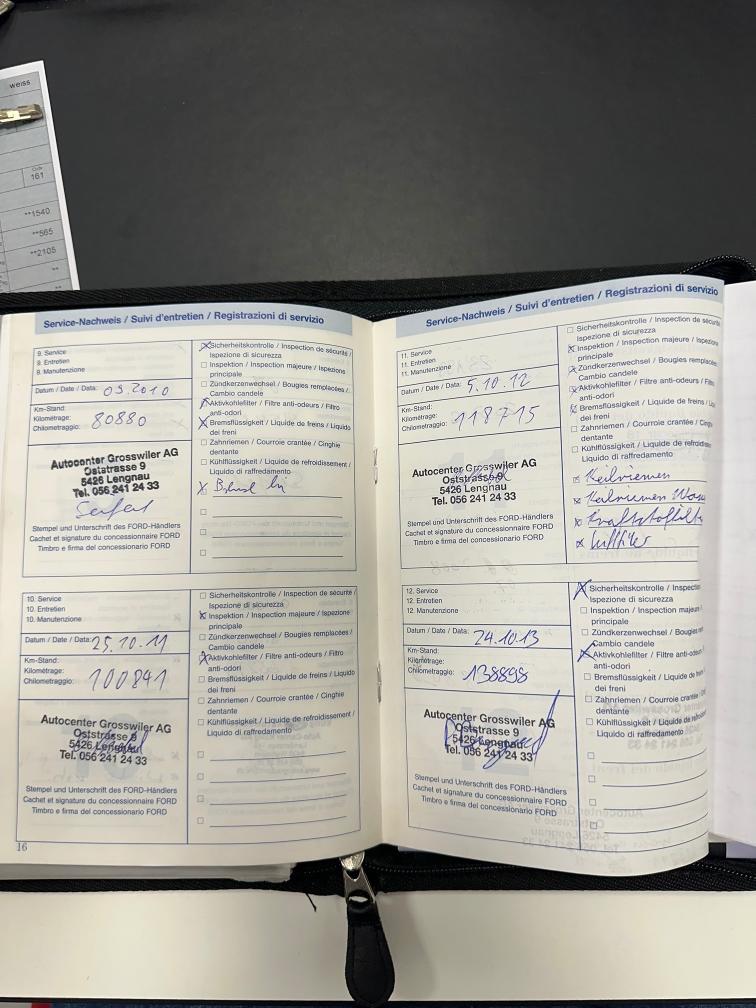 weiss
161
**1540
**565
**2105
**
Service-Nachweis / Suivi d'entretien / Registrazioni di servizio
9. Service
9. Entretien
9. Manutenzione
Datum / Date / Data: 09.2010
Km-Stand:
Kilométrage:
Chilometraggio: 80880
Autocenter Grosswiler AG
Oststrasse 9
5426 Lengnau
Tel. 056 241 24 33
Stempel und Unterschrift des FORD-Händlers
Cachet et signature du concessionnaire FORD
Timbro e firma del concessionario FORD
Sicherheitskontrolle / Inspection de sécurité /
Ispezione di sicurezza
Inspektion / Inspection majeure / Ispezione
principale
Zündkerzenwechsel / Bougies remplacées /
Cambio candele
Aktivkohlefilter / Filtre anti-odeurs / Filtro
anti-odori
Bremsflüssigkeit / Liquide de freins / Liquido
dei freni
Zahnriemen / Courroie crantée / Cinghie
dentante
Kühlflüssigkeit / Liquide de refroidissement /
Liquido di raffredamento
10. Service
10. Entretien
10. Manutenzione
Datum / Date / Data: 25.10.11
Km-Stand:
Kilométrage:
Chilometraggio: 100841
Autocenter Grosswiler AG
Oststrasse 9
5426 Lengnau
Tel. 056 241 24 33
Stempel und Unterschrift des FORD-Händlers
Cachet et signature du concessionnaire FORD
Timbro e firma del concessionario FORD
Sicherheitskontrolle / Inspection de sécurité /
Ispezione di sicurezza
Inspektion / Inspection majeure / Ispezione
principale
Zündkerzenwechsel / Bougies remplacées /
Cambio candele
Aktivkohlefilter / Filtre anti-odeurs / Filtro
anti-odori
Bremsflüssigkeit / Liquide de freins / Liquido
dei freni
Zahnriemen / Courroie crantée / Cinghie
dentante
Kühlflüssigkeit / Liquide de refroidissement /
Liquido di raffredamento
16
Service-Nachweis / Suivi d'entretien / Registrazioni di servizio
11. Service
11. Entretien
11. Manutenzione
Datum / Date / Data: 5.10.12
Km-Stand:
Kilométrage:
Chilometraggio: 118715
Autocenter Grosswiler AG
Oststrasse 9
5426 Lengnau
Tel. 056 241 24 33
Stempel und Unterschrift des FORD-Händlers
Cachet et signature du concessionnaire FORD
Timbro e firma del concessionario FORD
Sicherheitskontrolle / Inspection de sécurité
Ispezione di sicurezza
Inspektion / Inspection majeure / Ispezione
principale
Zündkerzenwechsel / Bougies remplacées
Cambio candele
Aktivkohlefilter / Filtre anti-odeurs / Filtro
anti-odori
Bremsflüssigkeit / Liquide de freins / Liq
dei freni
Zahnriemen / Courroie crantée / Cinghie
dentante
Kühlflüssigkeit / Liquide de refroidiss
Liquido di raffredamento
Keilriemen
Keilriemen
Kraftstofffilt
Luftfilter
12. Service
12. Entretien
12. Manutenzione
Datum / Date / Data: 24.10.13
Km-Stand:
Kilométrage:
Chilometraggio: 138898
Autocenter Grosswiler AG
Oststrasse 9
5426 Lengnau
Tel. 056 241 24 33
Stempel und Unterschrift des FORD-Händlers
Cachet et signature du concessionnaire FORD
Timbro e firma del concessionario FORD
Sicherheitskontrolle / Inspectio
Ispezione di sicurezza
Inspektion / Inspection majeure
principale
Zündkerzenwechsel / Bougies re
Cambio candele
Aktivkohlefilter / Filtre anti-odeurs
anti-odori
Bremsflüssigkeit / Liquide de frein
dei freni
Zahnriemen / Courroie crantée
dentante
Kühlflüssigkeit / Liquide de refroidis
Liquido di raffredamento